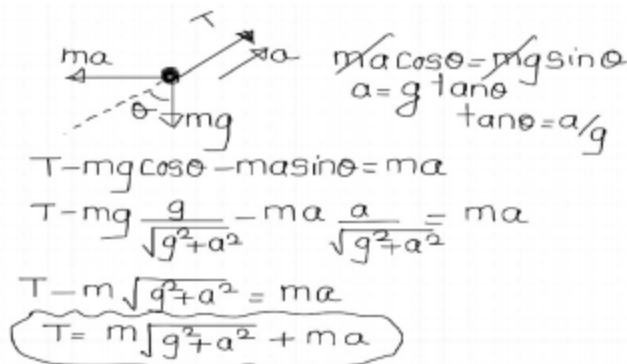 T
ma
a
θ
mg
macosθ=mgsinθ
a=g tanθ
tanθ=a/g
T-mgcosθ-masinθ=ma
T-mg g/√(g²+a²) -ma a/√(g²+a²) = ma
T-m√(g²+a²) = ma
T= m√(g²+a²) + ma